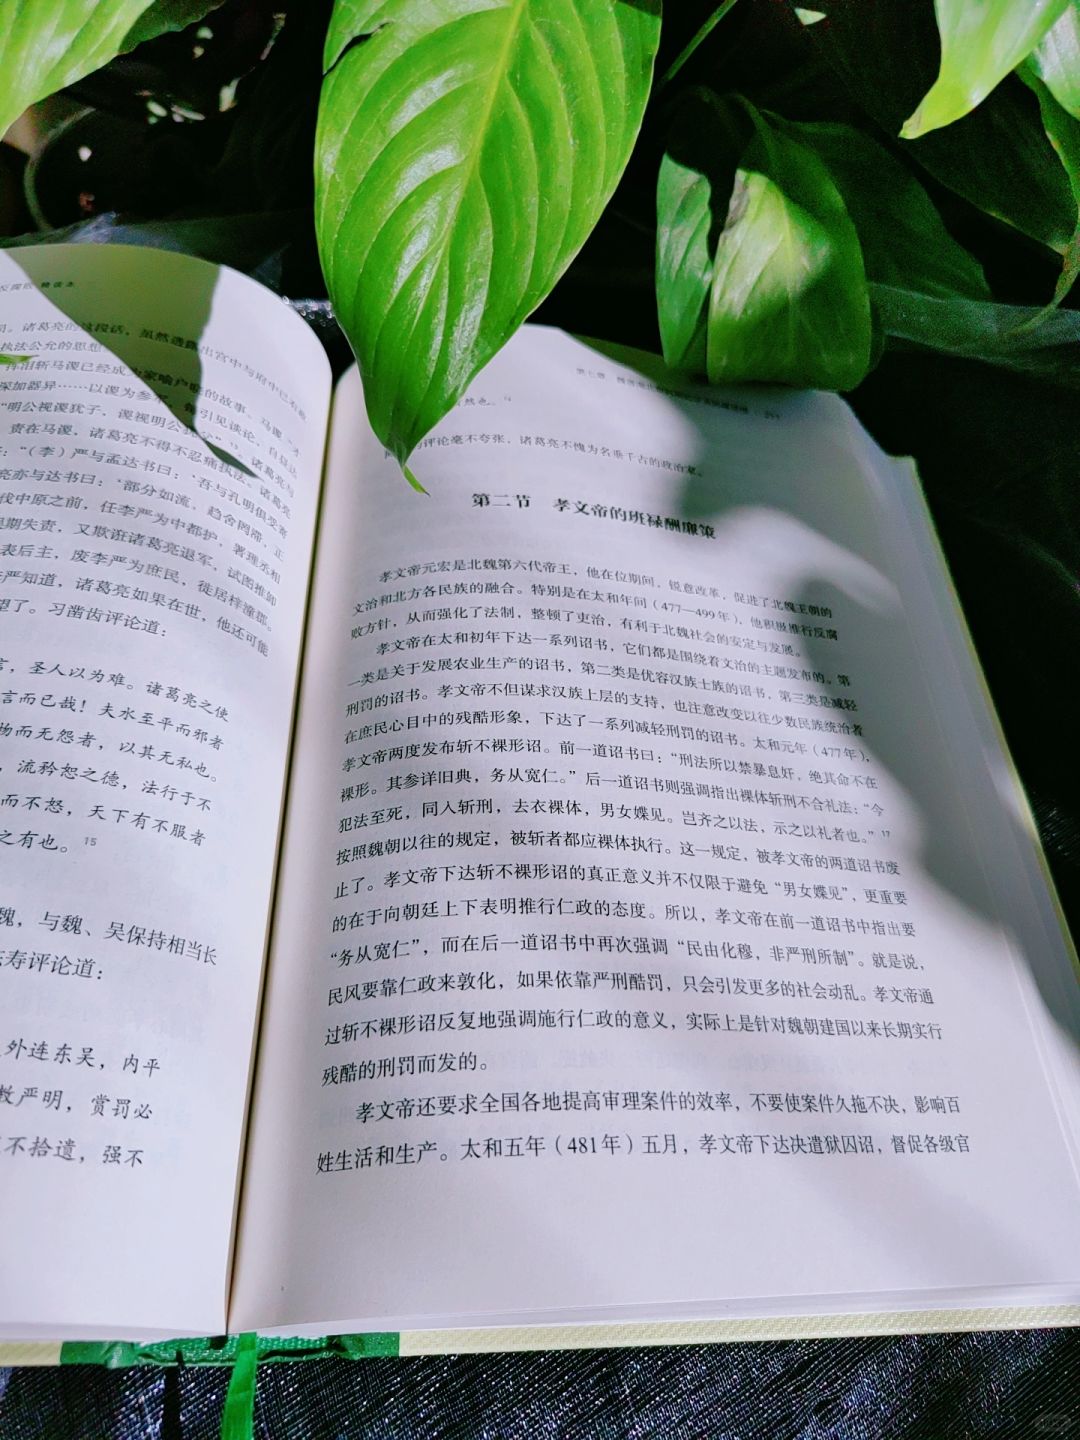 精读本
诸葛亮的这段话，虽然透露出宫中与府中已有
执法公允的思想
挥泪斩马谡已经成为家喻户晓的故事。马谡“才
深加器异……以谡为参军，每引见谈论，自昼达
“明公视谡犹子，谡视明公犹父”
责在马谡，诸葛亮不得不忍痛执法。诸葛亮
“（李）严与孟达书曰：‘吾与孔明俱受寄
亮亦与达书曰：‘部分如流，趋舍罔滞，正
伐中原之前，任李严为中都护，署理丞相
期失责，又欺诳诸葛亮退军，试图推卸
表后主，废李严为庶民，徙居梓潼郡。
严知道，诸葛亮如果在世，他还可能
望了。习凿齿评论道：
圣人以为难。诸葛亮之使
言而已哉！夫水至平而邪者
物而无怨者，以其无私也。
流矜恕之德，法行于不
而不怒，天下有不服者
之有也。15
魏，与魏、吴保持相当长
寿评论道：
外连东吴，内平
教严明，赏罚必
不拾遗，强不
然也。
评论毫不夸张，诸葛亮不愧为名垂千古的政治家。
第二节 孝文帝的班禄酬廉策
孝文帝元宏是北魏第六代帝王，他在位期间，锐意改革，促进了北魏王朝的
文治和北方各民族的融合。特别是在太和年间（477—499年），他积极推行反腐
败方针，从而强化了法制，整顿了吏治，有利于北魏社会的安定与发展。
孝文帝在太和初年下达一系列诏书，它们都是围绕着文治的主题发布的。第
一类是关于发展农业生产的诏书，第二类是优容汉族士族的诏书，第三类是减轻
刑罚的诏书。孝文帝不但谋求汉族上层的支持，也注意改变以往少数民族统治者
在庶民心目中的残酷形象，下达了一系列减轻刑罚的诏书。太和元年（477年），
孝文帝两度发布斩不裸形诏。前一道诏书曰：“刑法所以禁暴息奸，绝其命不在
裸形。其参详旧典，务从宽仁。”后一道诏书则强调指出裸体斩刑不合礼法：“今
犯法至死，同入斩刑，去衣裸体，男女媟见。岂齐之以法，示之以礼者也。”17
按照魏朝以往的规定，被斩者都应裸体执行。这一规定，被孝文帝的两道诏书废
止了。孝文帝下达斩不裸形诏的真正意义并不仅限于避免“男女媟见”，更重要
的在于向朝廷上下表明推行仁政的态度。所以，孝文帝在前一道诏书中指出要
“务从宽仁”，而在后一道诏书中再次强调“民由化穆，非严刑所制”。就是说，
民风要靠仁政来敦化，如果依靠严刑酷罚，只会引发更多的社会动乱。孝文帝通
过斩不裸形诏反复地强调施行仁政的意义，实际上是针对魏朝建国以来长期实行
残酷的刑罚而发的。
孝文帝还要求全国各地提高审理案件的效率，不要使案件久拖不决，影响百
姓生活和生产。太和五年（481年）五月，孝文帝下达决遣狱囚诏，督促各级官